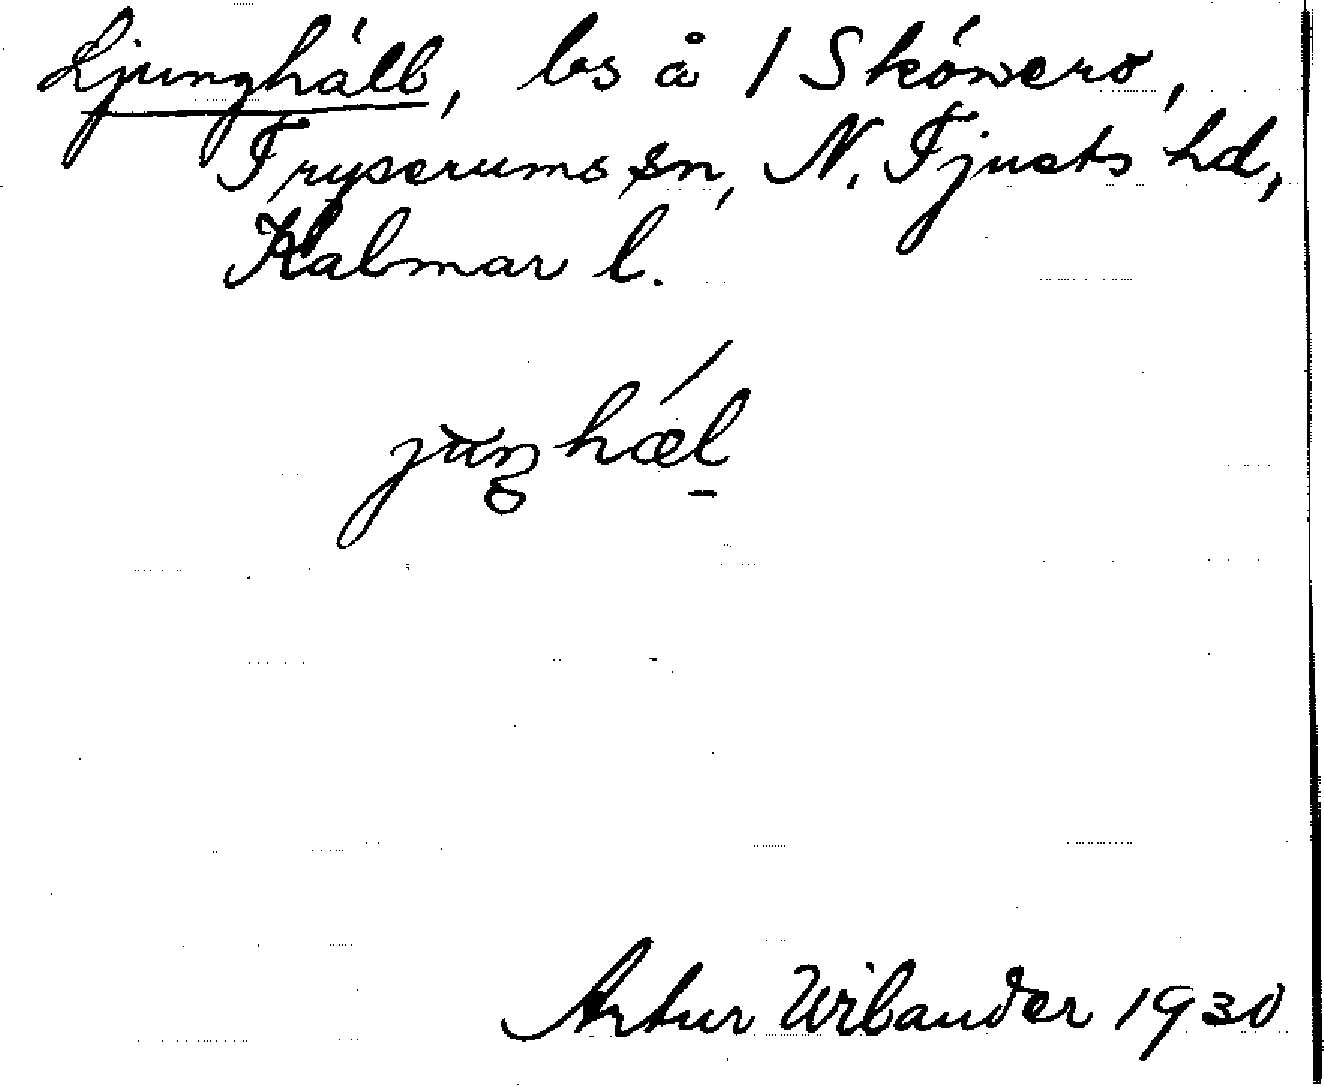 Ljunghäll, ls å 1 Skönero,
Fryserums sn, N. Tjusts hd,
Kalmar l.
Artur Wilander 1930